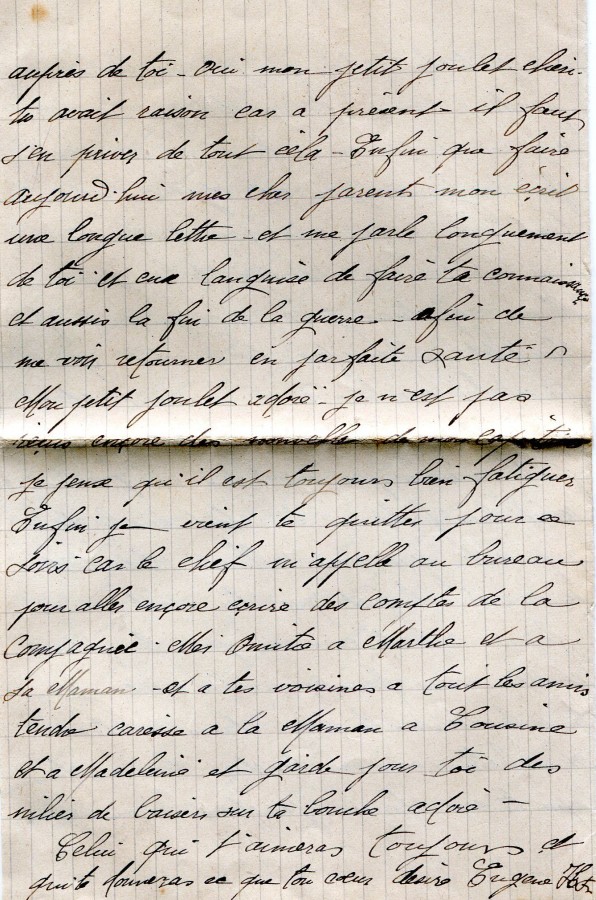 auprès de toi - Oui mon petit poulet chéri -
tu avait raison car a présent il faut
s'en priver de tout cèla - Enfin que faire
aujourd'hui mes cher parents mon écrit
une longue lettre - et me parle longuement
de toi et eux languise de faire ta connaissance
et aussis la fin de la guerre - afin de
me voir retourner en parfaite santé
Mon petit poulet adoré - je n'est pas
reçus encore des nouvelle de mon
je peux qu'il est toujours bien fatiguer
Enfin je vient te quitter pour ce
soir car le chef m'appelle au bureau
pour aller encore écrire des comptes de la
Compagnie - Mes Amitié a Marthe et a
sa Maman - et a tes voisines a tout les amis
tendre caresse a la Maman a Cousine
et a Madeleine et garde pour toi des
milier de baisers sur ta bouche adoré -
Celui qui t'aimeras toujours et
qui te donneras ce que ton cœur désire Eugène